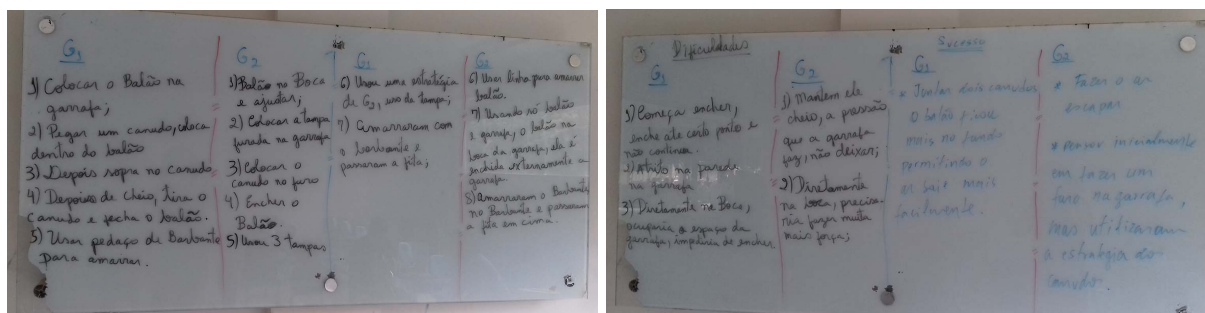 G1
1) Colocar o Balão na
garrafa;
2) Pegar um canudo, coloca
dentro do balão
3) Depois sopra no canudo
4) Depois de cheio, tira o
canudo e fecha o balão.
5) Usar pedaço de Barbante
para amarrar.
G2
1) Balão na Boca
e ajustar;
2) Colocar a tampa
furada na garrafa
3) Colocar o
canudo no furo
4) Encher o
Balão.
5) Usou 3 tampas
G1
6) Usou uma estratégica
de G2, uso da tampa;
7) Amarraram com
o barbante e
passaram a fita;
G2
6) Usar linha para amarrar
balão.
7) Usando só balão
e garrafa, o balão na
boca da garrafa, ela é
enchida externamente a
garrafa
8) Amarraram o Barbante
no Barbante e passaram
a fita em cima.
Dificuldades
G1
1) Começa encher,
enche até certo ponto e
não continua.
2) Atrito na parede
na garrafa
3) Diretamente na Boca,
o espaço da
garrafa, impediria de encher
G2
1) Mantem ele
cheio, a pressão
que a garrafa
faz, não deixar;
2) Diretamente
na boca, precisa-
ria fazer muita
mais força;
Sucesso
G1
* Juntar dois canudos
o balão ficou
mais no fundo
permitindo o
ar sair mais
facilmente.
G2
* Fazer o ar
escapar
* pensar inicialmente
em fazer um
furo na garrafa,
mas utilizaram
a estratégia do
canudo.